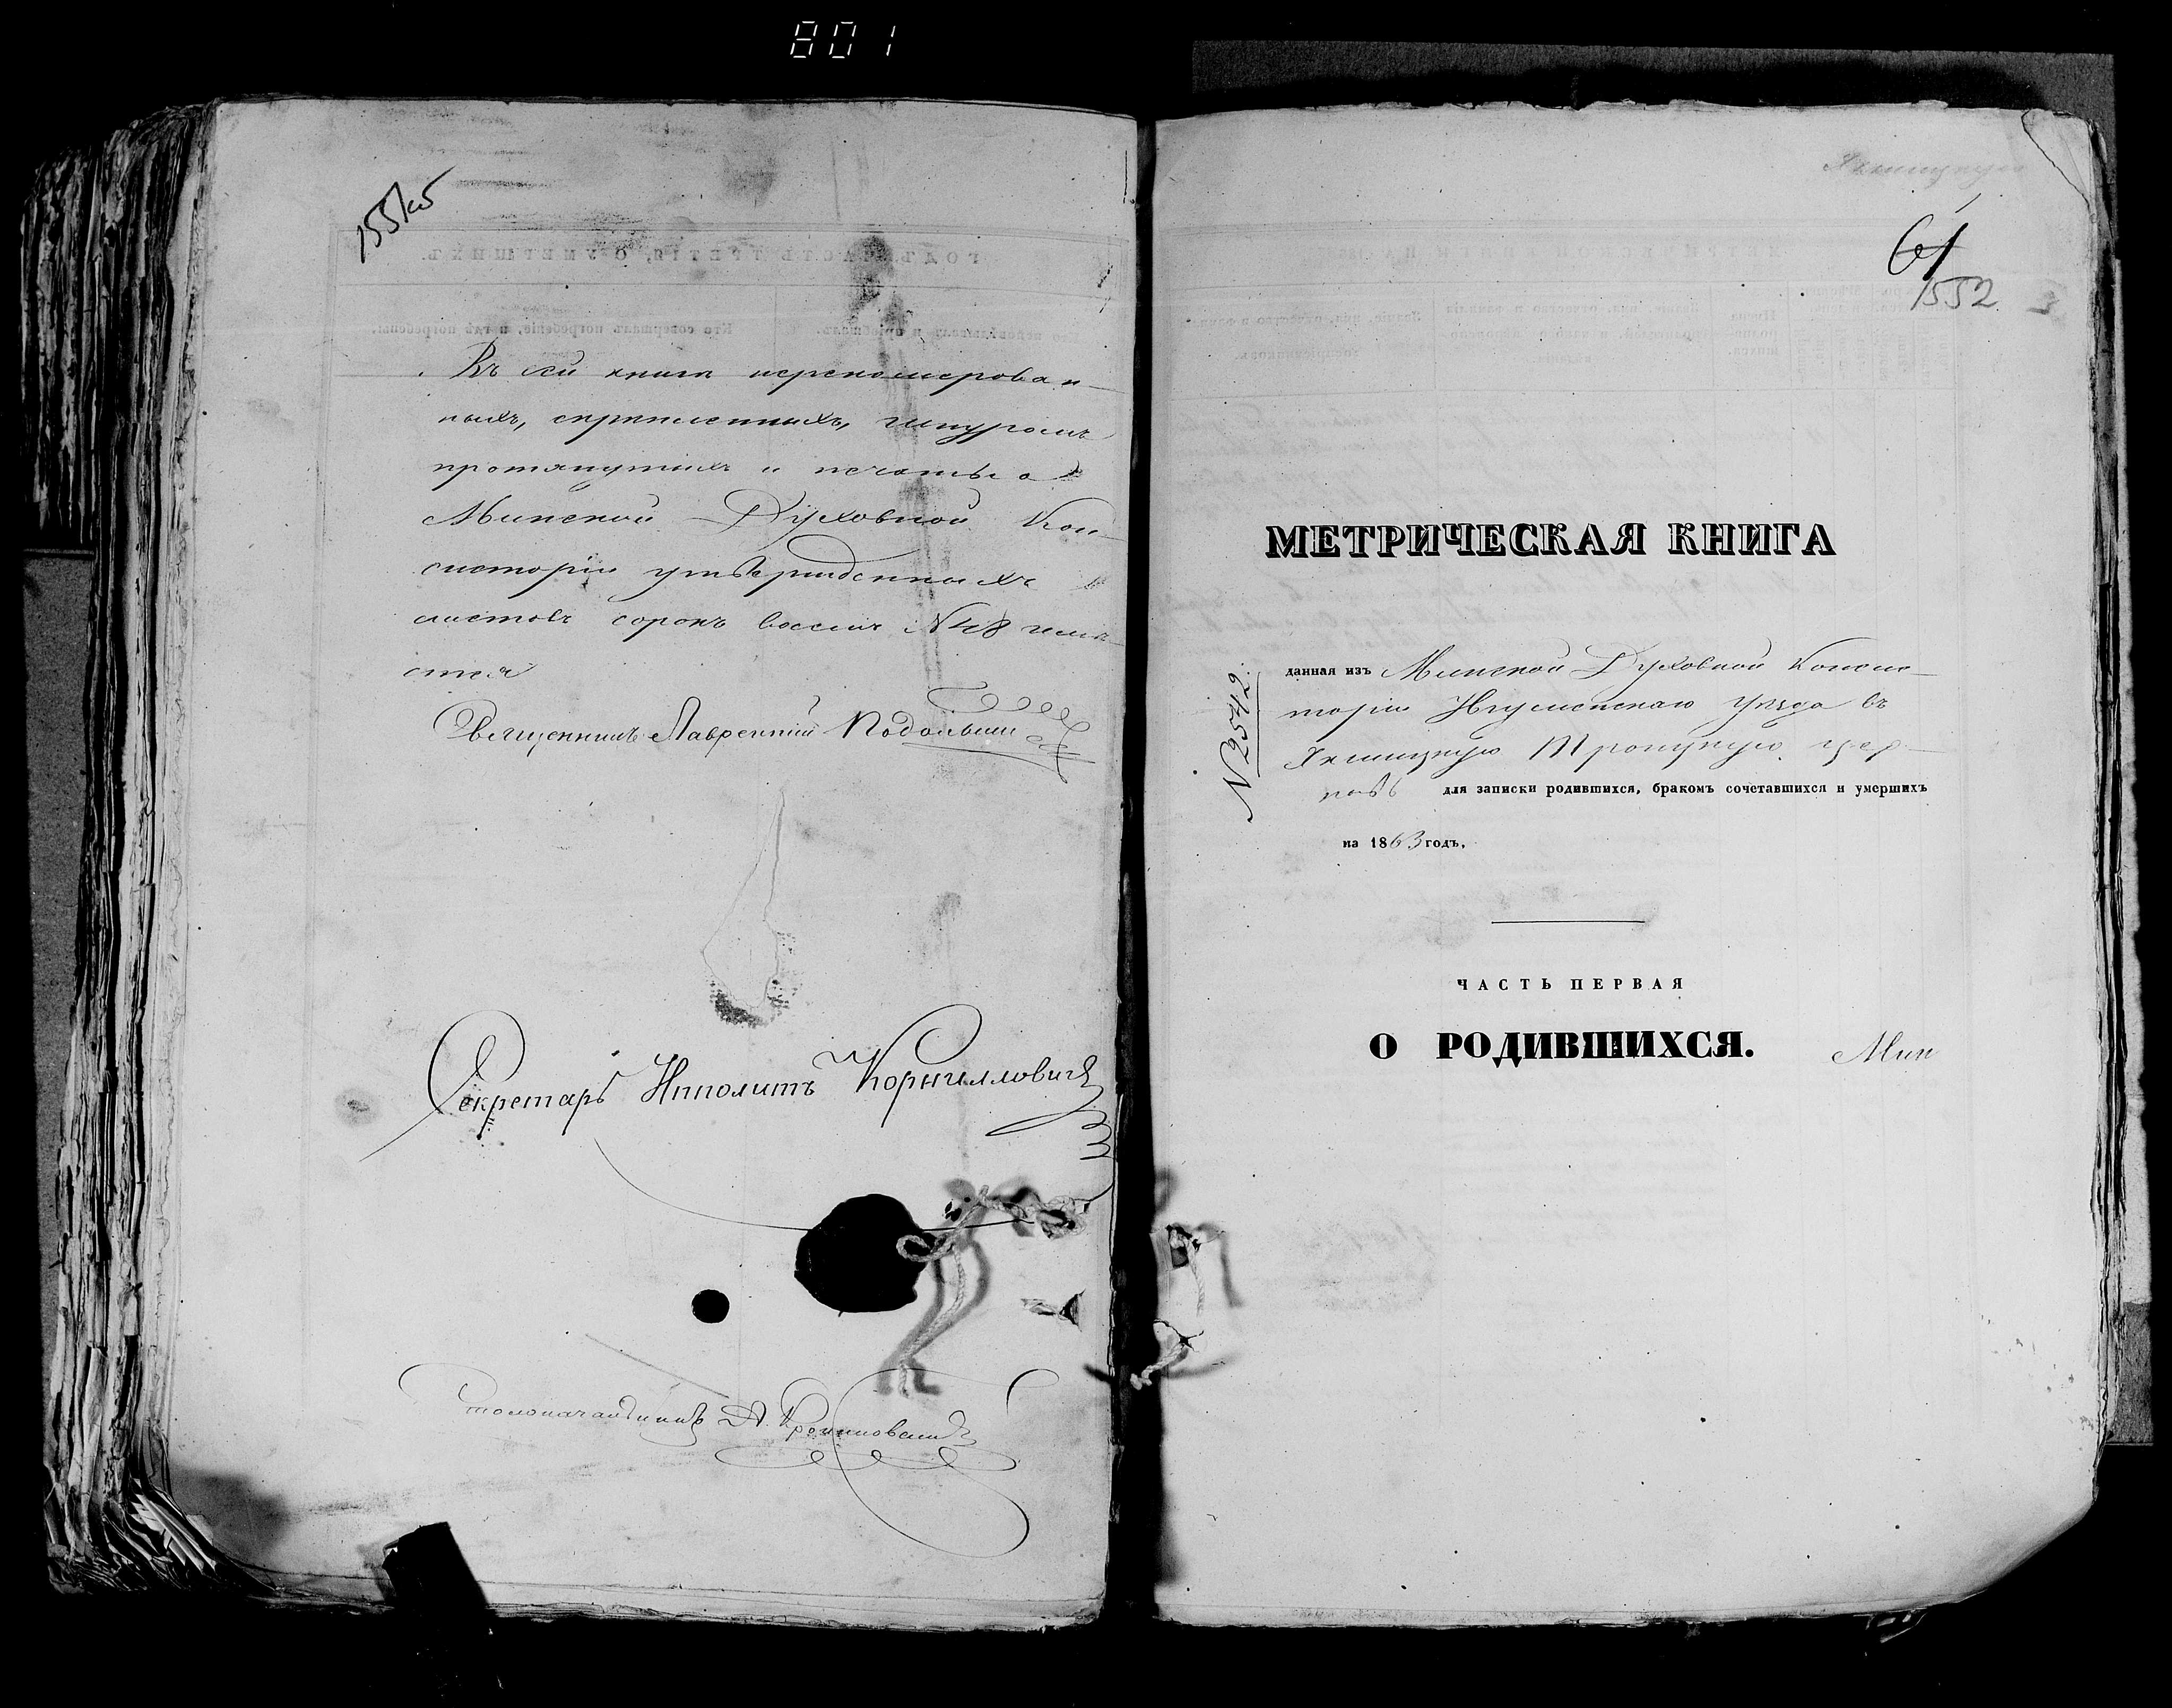 801
Въ сей книгѣ перенумерован-
ныхъ, скрѣпленныхъ, шнуромъ
протянутыхъ и печатью
Минской Духовной Кон-
систоріи утвержденныхъ
листовъ сорокъ восемь N 48 имѣ-
ется
Священникъ Лаврентій
Секретарь Ипполитъ Корнилловичъ
Столоначальникъ А.
61
1552
МЕТРИЧЕСКАЯ КНИГА
N 2542
данная изъ Минской Духовной Конси-
торіи Игуменскаго Уѣзда въ
Якшицкую Троицкую цер-
ковь для записки родившихся, бракомъ сочетавшихся и умершихъ
на 1863 годъ.
ЧАСТЬ ПЕРВАЯ
О РОДИВШИХСЯ.
Мин